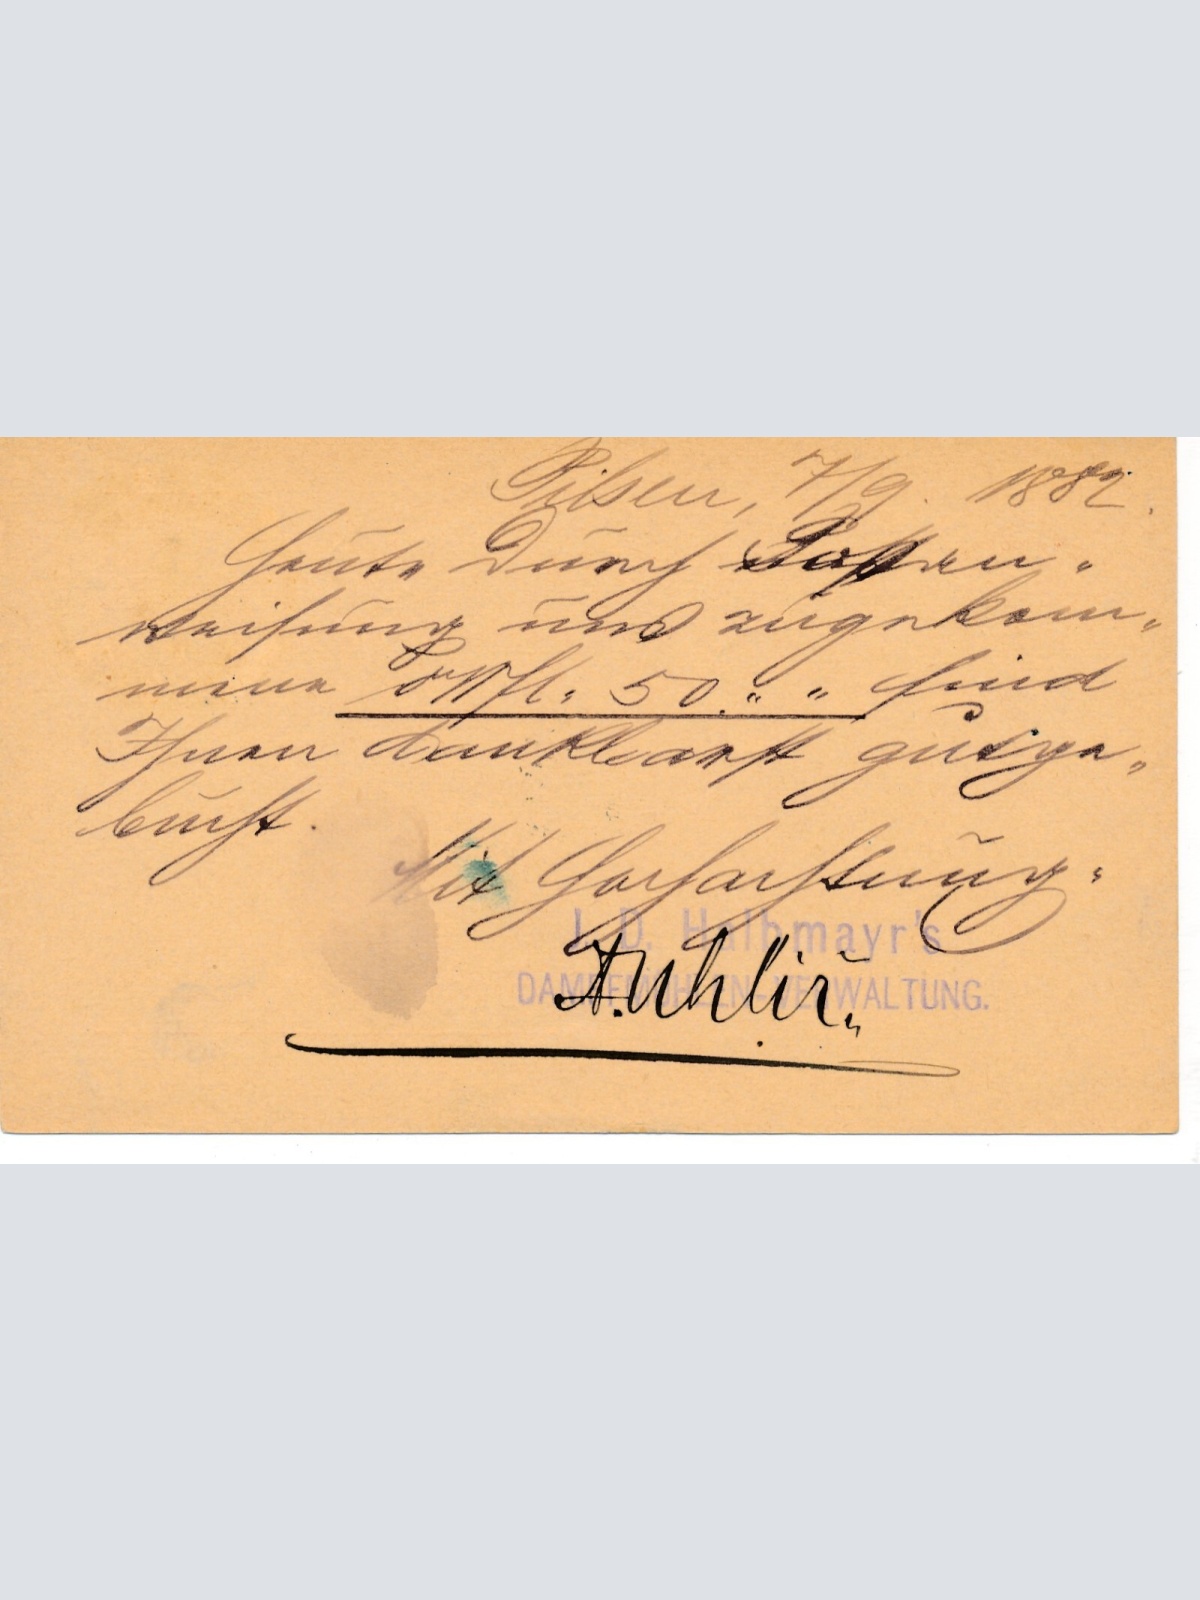 Pilsen, 7/9. 1882.
Heute durch Posten„
weisung uns zugekom„
mene ÖWfl. 50.„ „ sind
Ihnen dankbarst gutge„
bucht.
Mit Hochachtung
L. D. Halbmayr's
DAMPFMÜHLEN-VERWALTUNG.
A. Uhlíř